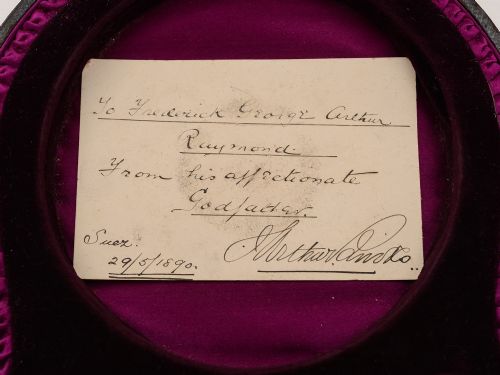 To Frederick George Arthur
Raymond.
From his affectionate
Godfather.
Suez.
29/5/1890.
Arthur